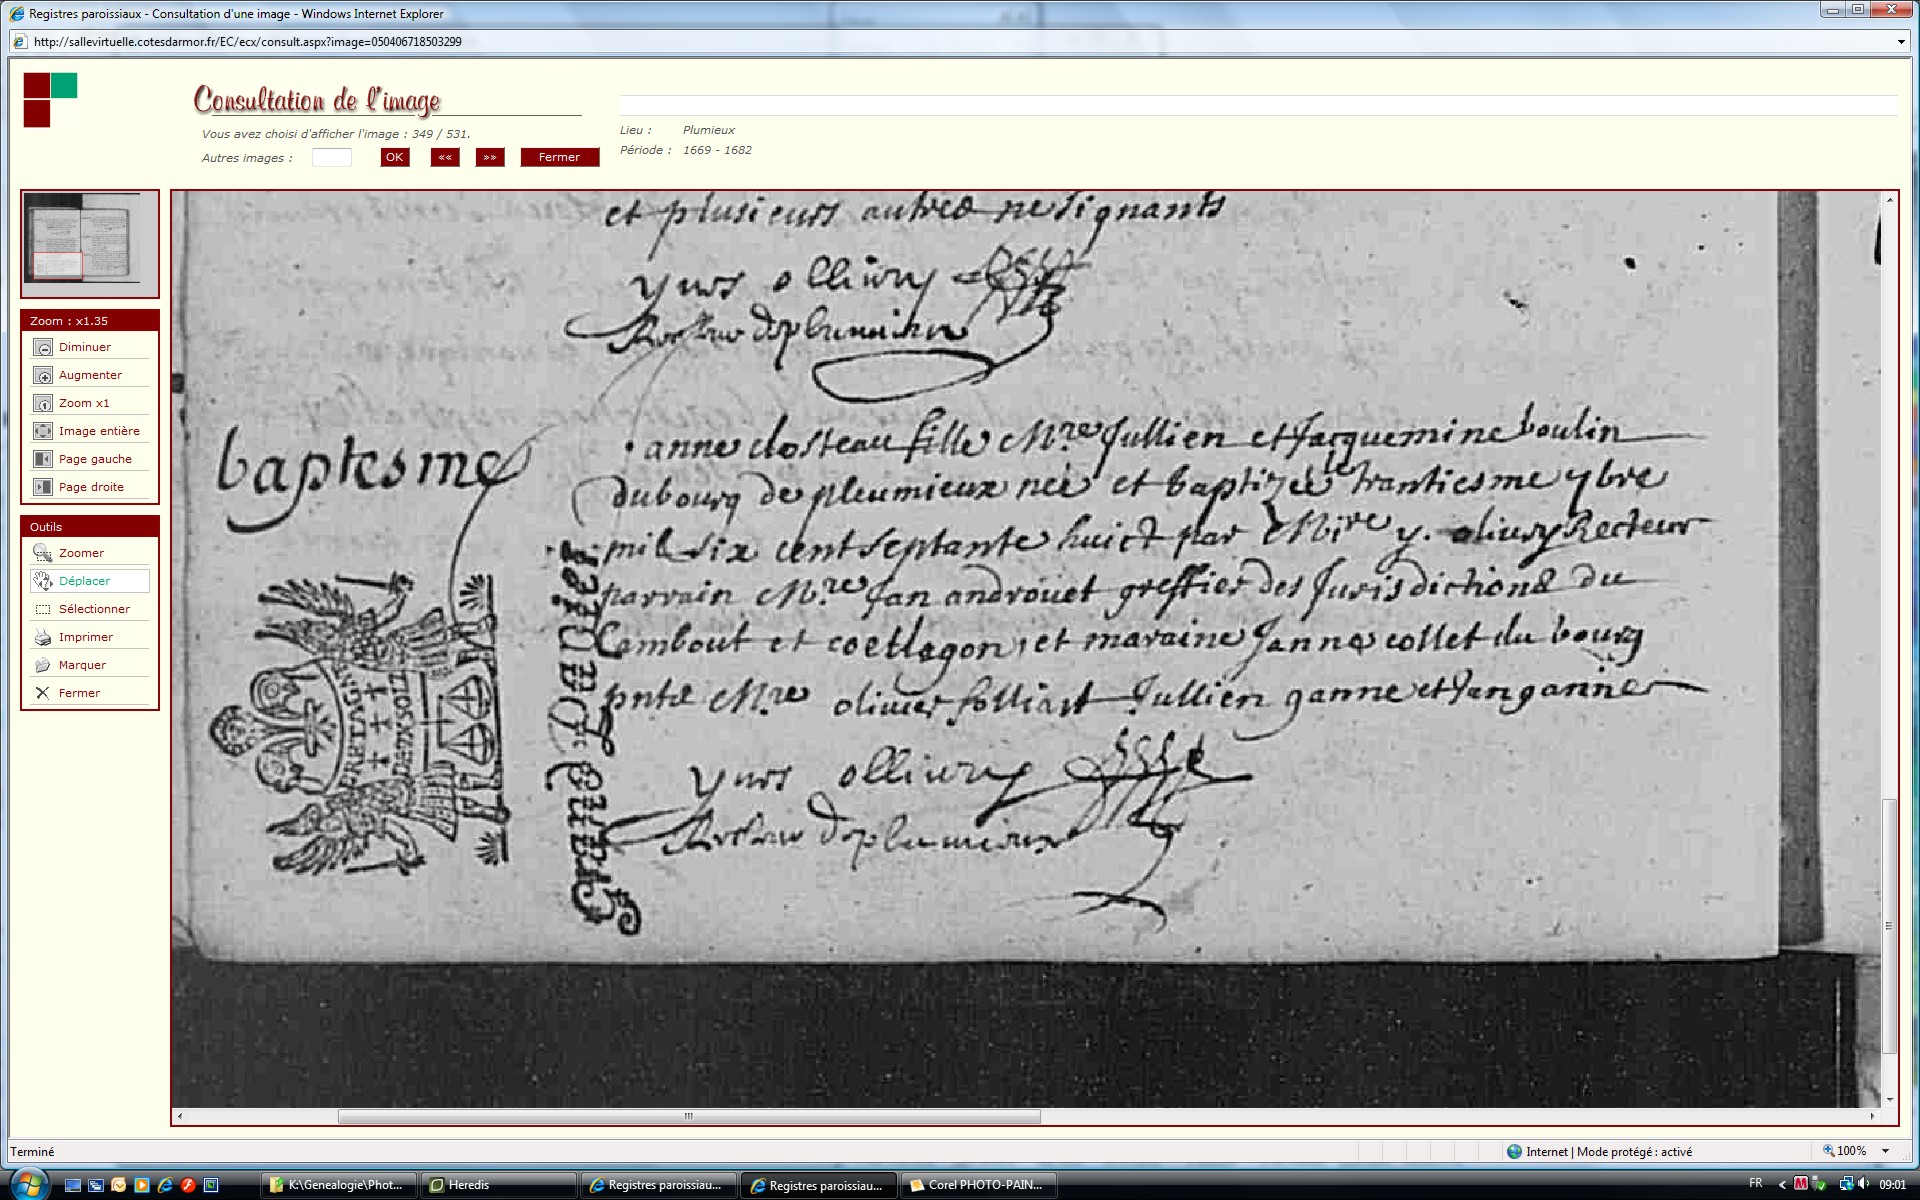 Registres paroissiaux - Consultation d'une image - Windows Internet Explorer
http://sallevirtuelle.cotesdarmor.fr/EC/ecx/consult.aspx?image=050406718503299
Consultation de l'image
Vous avez choisi d'afficher l'image : 349 / 531.
Autres images :
OK
««
»»
Fermer
Lieu : Plumieux
Période : 1669 - 1682
Zoom : x1.35
Diminuer
Augmenter
Zoom x1
Image entière
Page gauche
Page droite
Outils
Zoomer
Déplacer
Sélectionner
Imprimer
Marquer
Fermer
et plusieurs autres ne signants
yves ollivry
Recteur de plumieux
baptesme
anne closteau fille Mre Jullien et Jacquemine boulin
du bourg de pleumieux née et baptizée trantiesme ybre
mil six cent septante huict par Mire y. olivry Recteur
parrain Mre Jan androuet greffier des Jurisdictions du
Cambout et coetlogon, et maraine Janne collet du bourg
pnts Mre olivier folliart Jullien ganne et Jan ganne
yves ollivry
Recteur de plumieux
BRETAGNE
Terminé
Internet | Mode protégé : activé
100%
K:\Genealogie\Phot...
Heredis
Registres paroissiau...
Registres paroissiau...
Corel PHOTO-PAIN...
FR
09:01